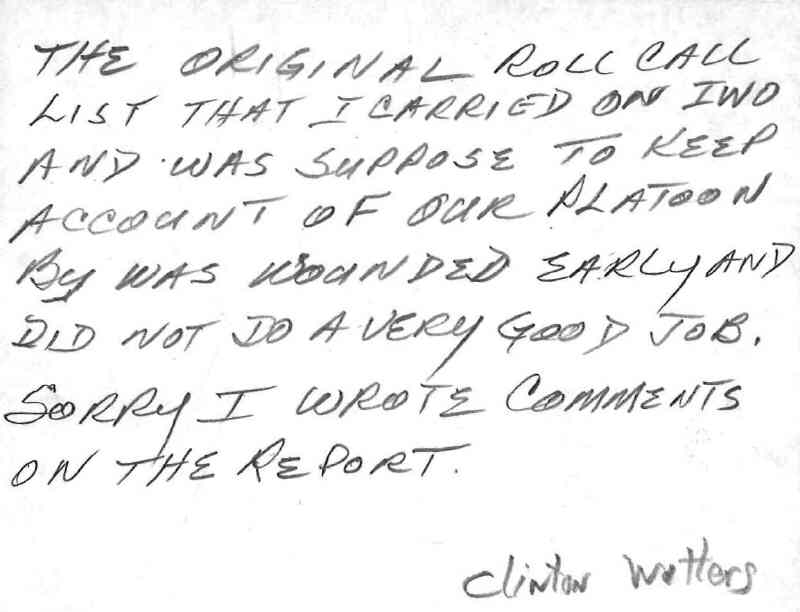 THE ORIGINAL ROLL CALL
LIST THAT I CARRIED ON IWO
AND WAS SUPPOSE TO KEEP
ACCOUNT OF OUR PLATOON
By WAS WOUNDED EARLY AND
DID NOT DO A VERY GOOD JOB.
SORRY I WROTE COMMENTS
ON THE REPORT.
Clinton Watters